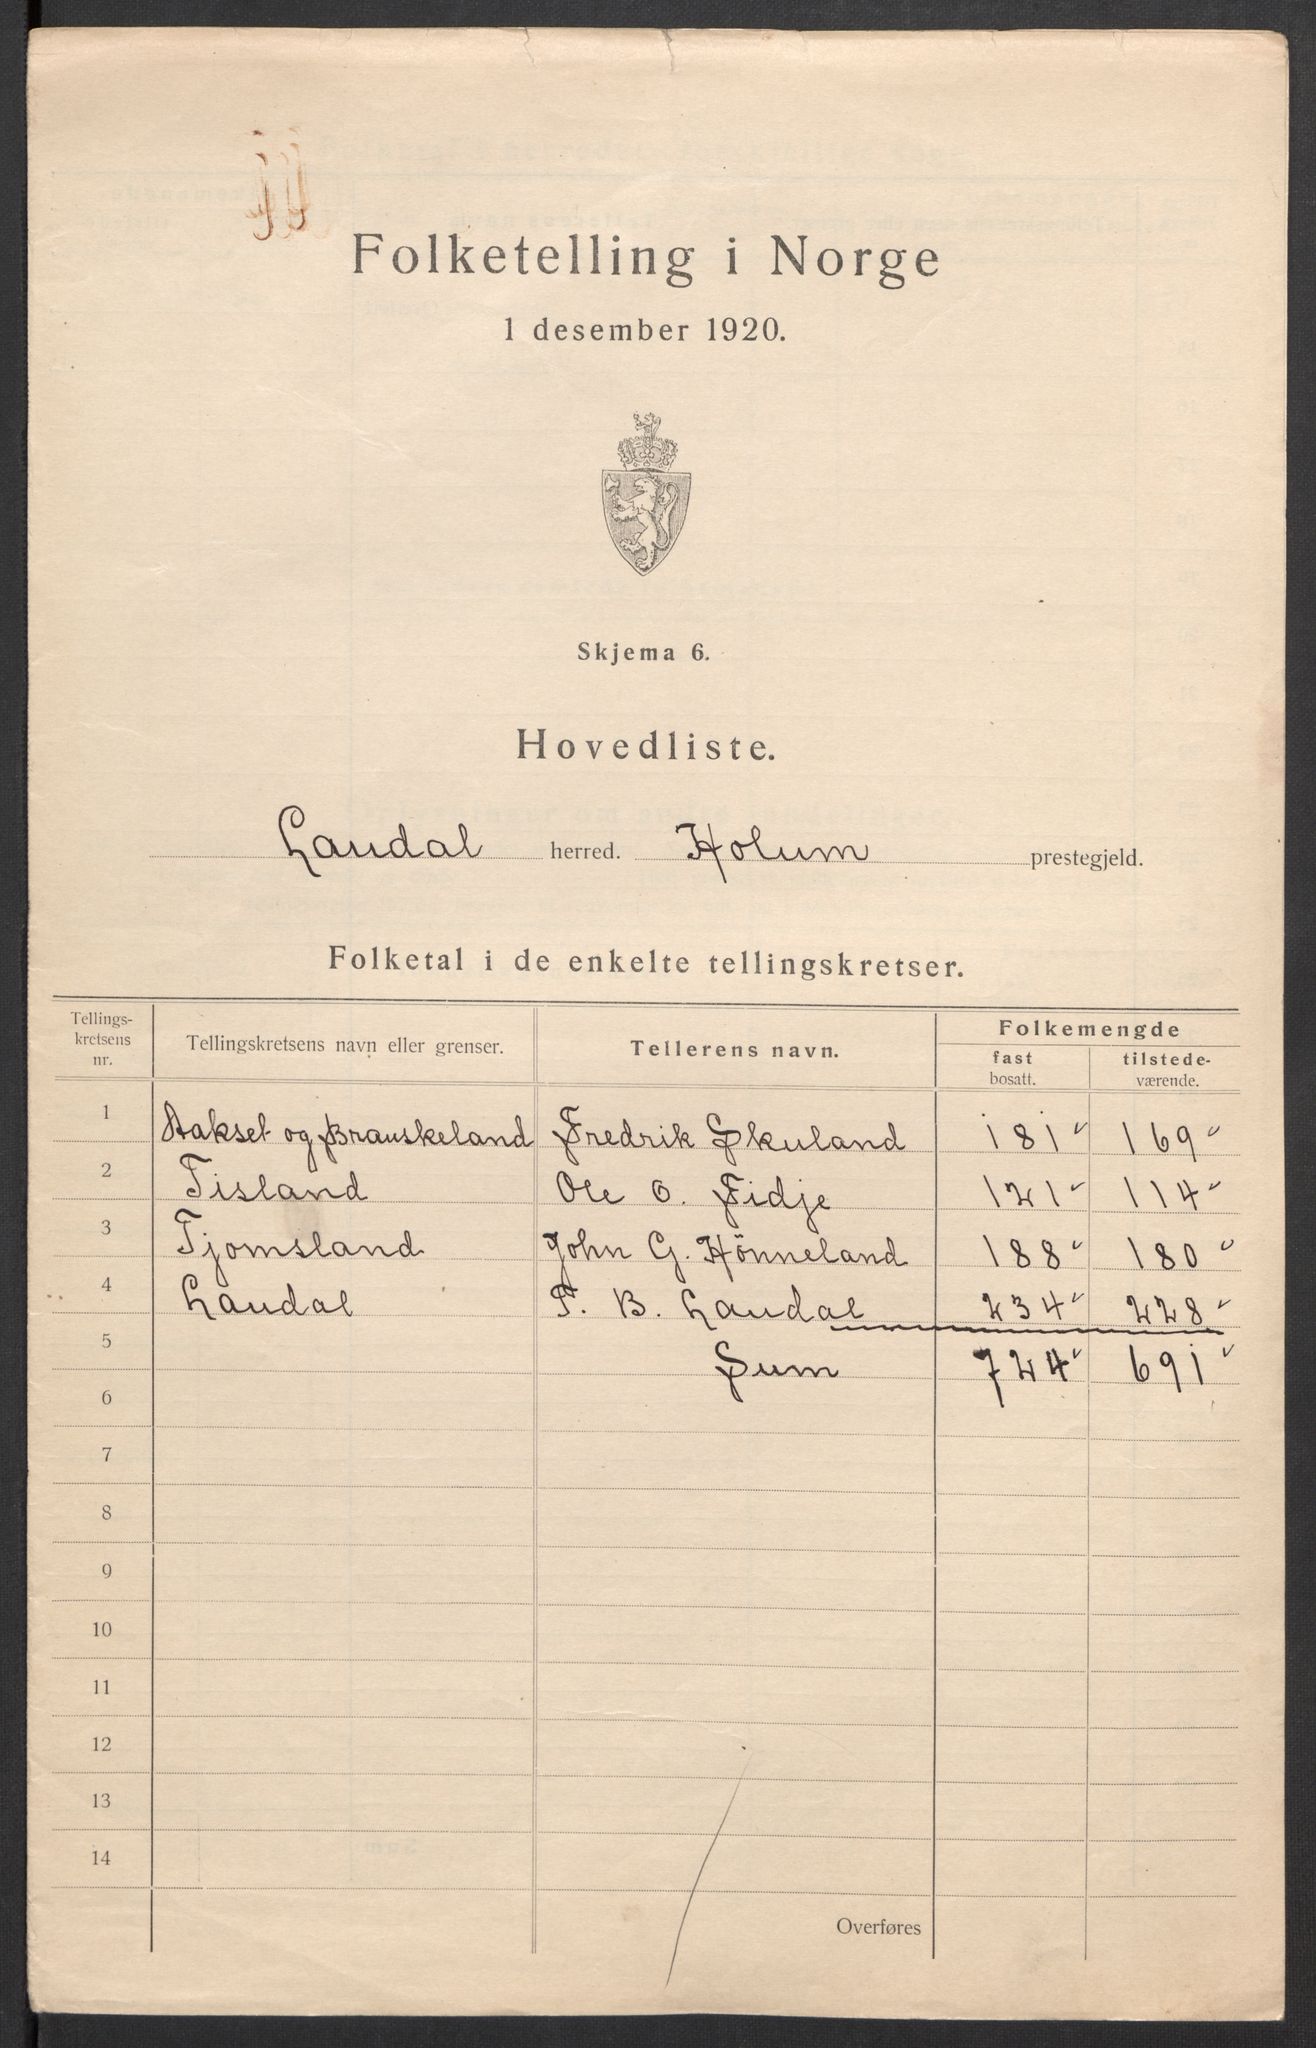 Folketelling i Norge
1 desember 1920.
Skjema 6.
Hovedliste.
Laudal herred. Holum prestegjeld.
Folketal i de enkelte tellingskretser.
Tellings-
kretsens
nr.
Tellingskretsens navn eller grenser.
Tellerens navn.
Folkemengde
fast
bosatt.
tilstede-
værende.
1 og Brauskeland Fredrik Skuland 181 169
2 Tisland Ole O. Fidje 121 114
3 Tjomsland John G. Hönneland 188 180
4 Laudal T. B. Laudal 234 228
5 Sum 724 691
6
7
8
9
10
11
12
13
14
Overføres